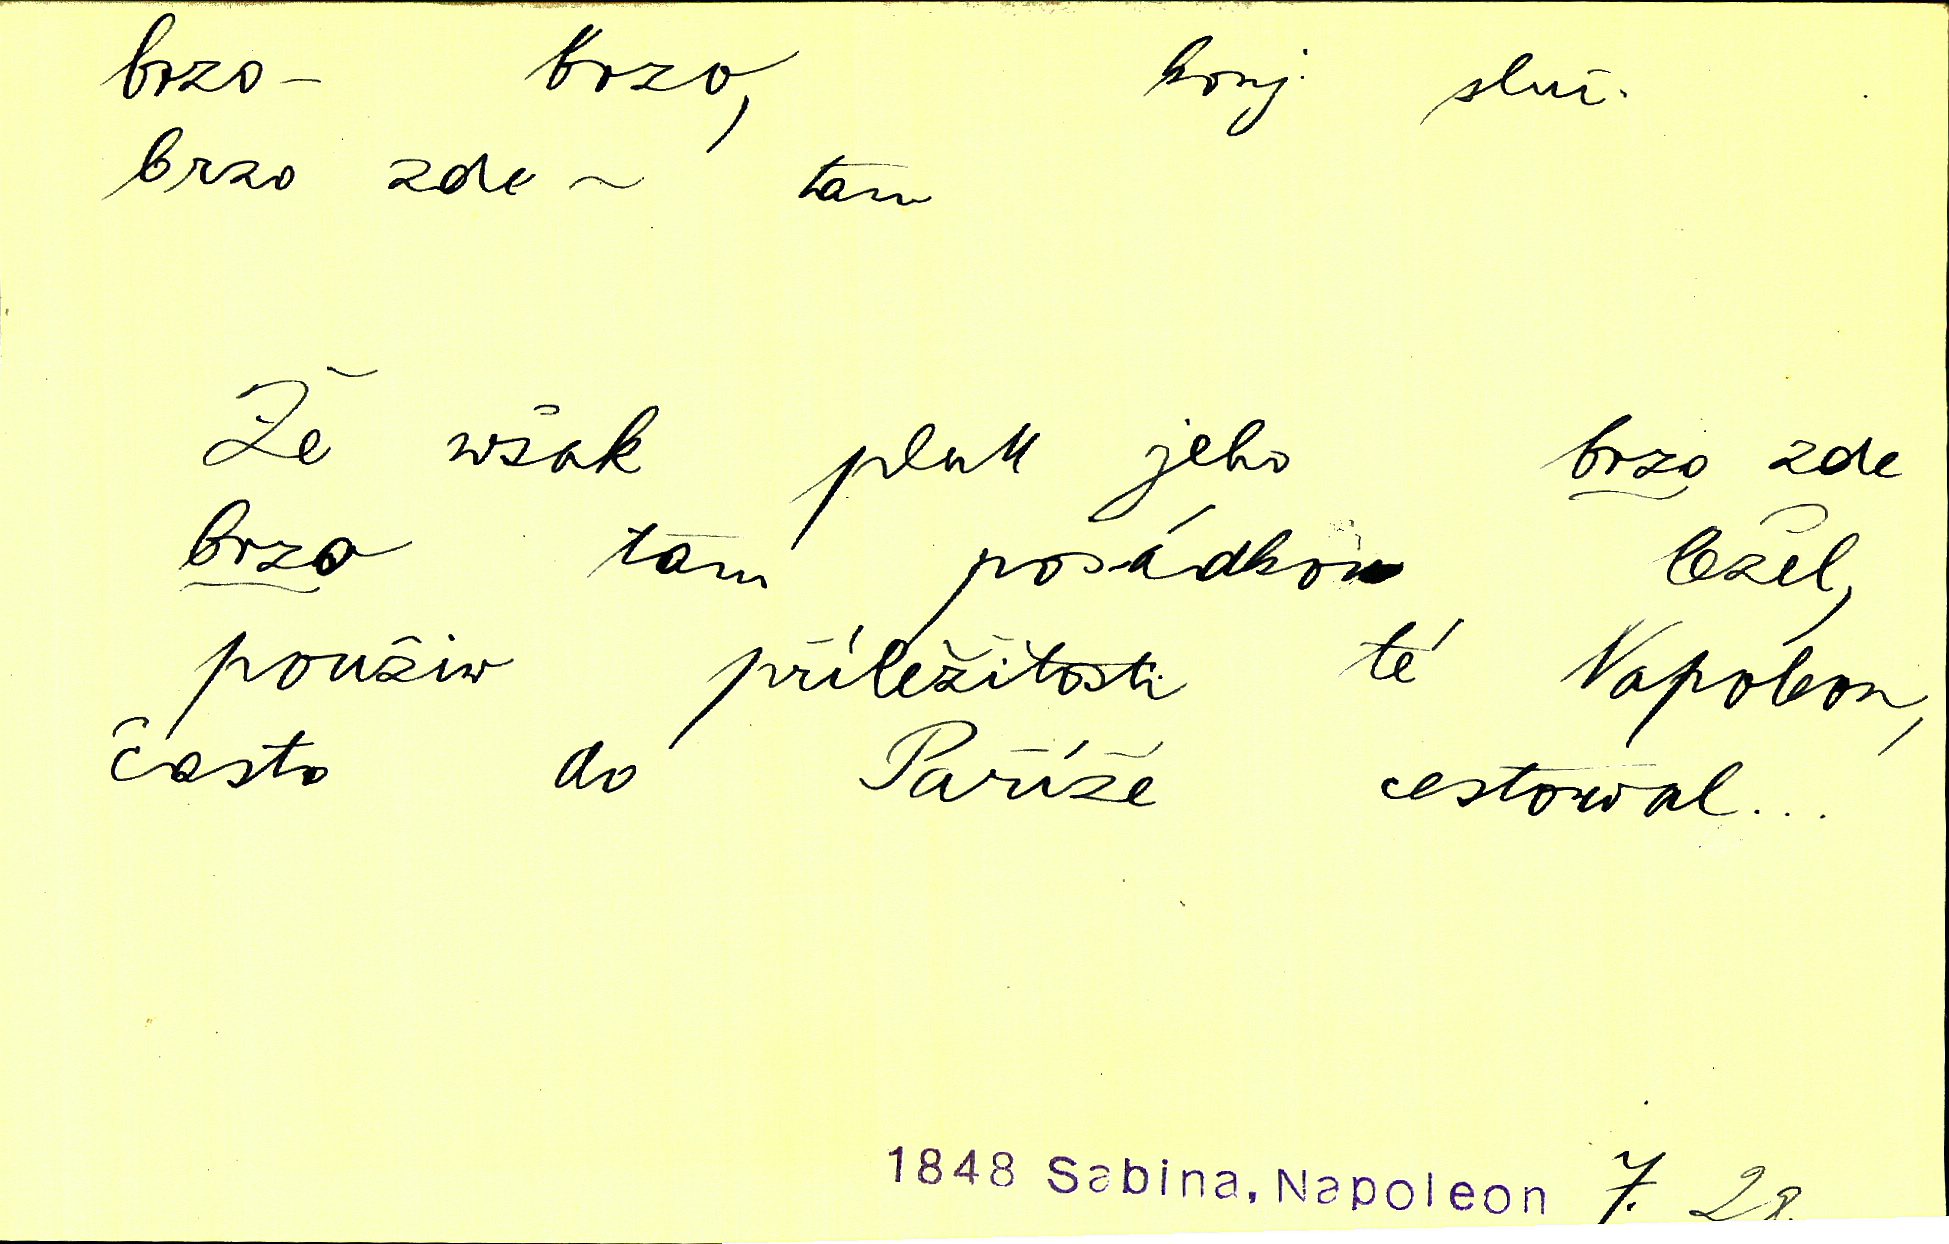 brzo – brzo, konj. sluč.
brzo zde ~ tam
Že však pluk jeho brzo zde
brzo tam posádkou ležel,
použiw příležitosti té Napoleon,
často do Paříže cestowal...
1848 Sabina, Napoleon 7. 28.